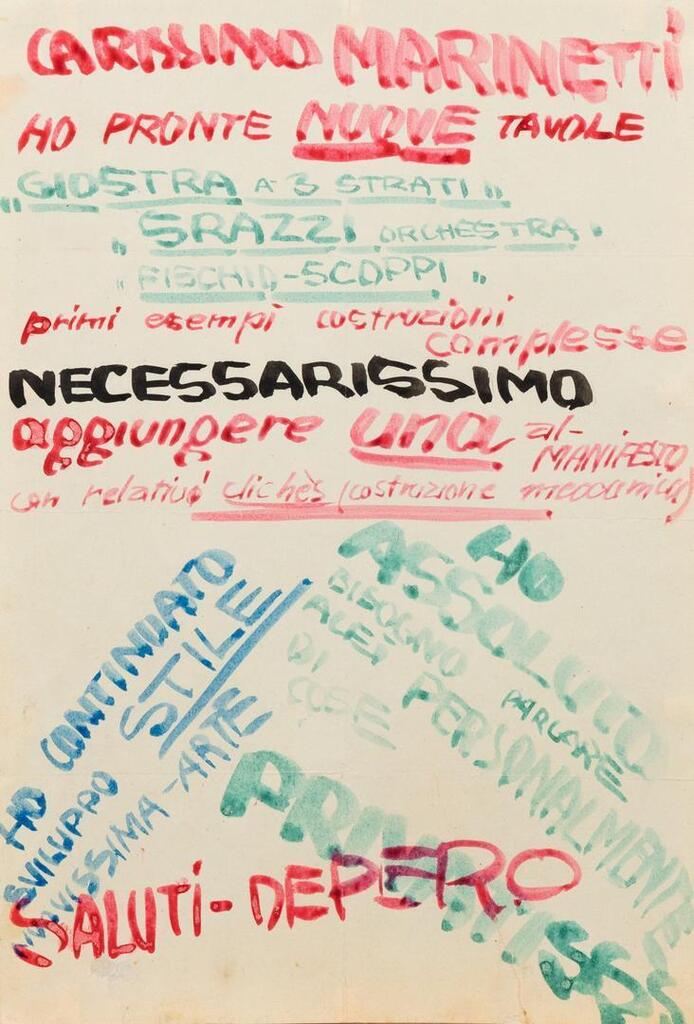 CARISSIMO MARINETTI
HO PRONTE NUOVE TAVOLE
„GIOSTRA A 3 STRATI„
„SRAZZI ORCHESTRA„
„FISCHIO-SCOPPI„
primi esempi costruzioni
complesse
NECESSARISSIMO
aggiungere una al-
MANIFESTO
con relativi clichès (costruzione meccanica)
HO CONTINUATO
SVILUPPO STILE
-ARTE
HO
ASSOLUTO
BISOGNO PARLARE
PERSONALMENTE
DI
COSE
SALUTI-DEPERO